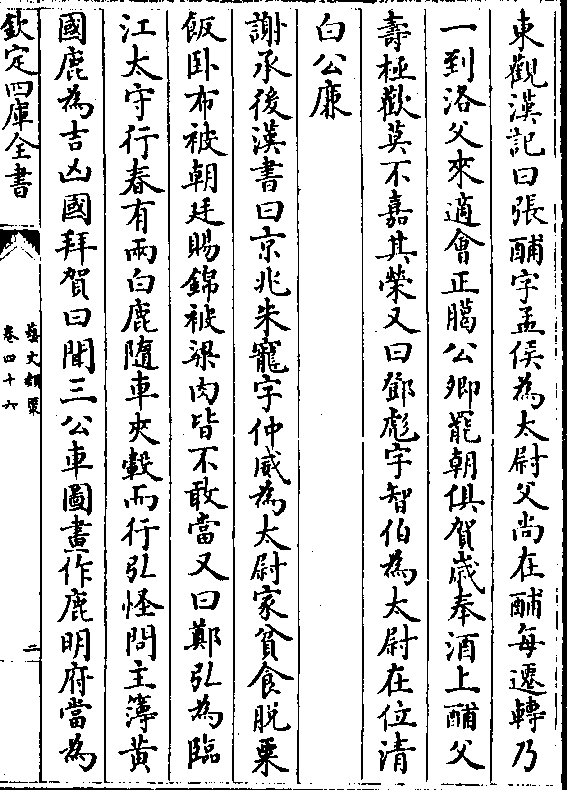 東觀漢記曰張酺字孟侯為太尉父尚在酺每遷轉乃
一到洛父來適會正臈公卿罷朝俱賀歳奉酒上酺父
壽極歡莫不嘉其榮又曰鄧彪字智伯為太尉在位清
白公㢘
謝承後漢書曰京兆朱寵字仲威為太尉家貧食脱粟
飯卧布被朝廷賜錦被梁肉皆不敢當又曰鄭弘為臨
江太守行春有兩白鹿隨車夾轂而行弘怪問主簿黄
國鹿為吉凶國拜賀曰聞三公車圖畫作鹿明府當為
欽定四庫全書
藝文類聚
卷四十六
二